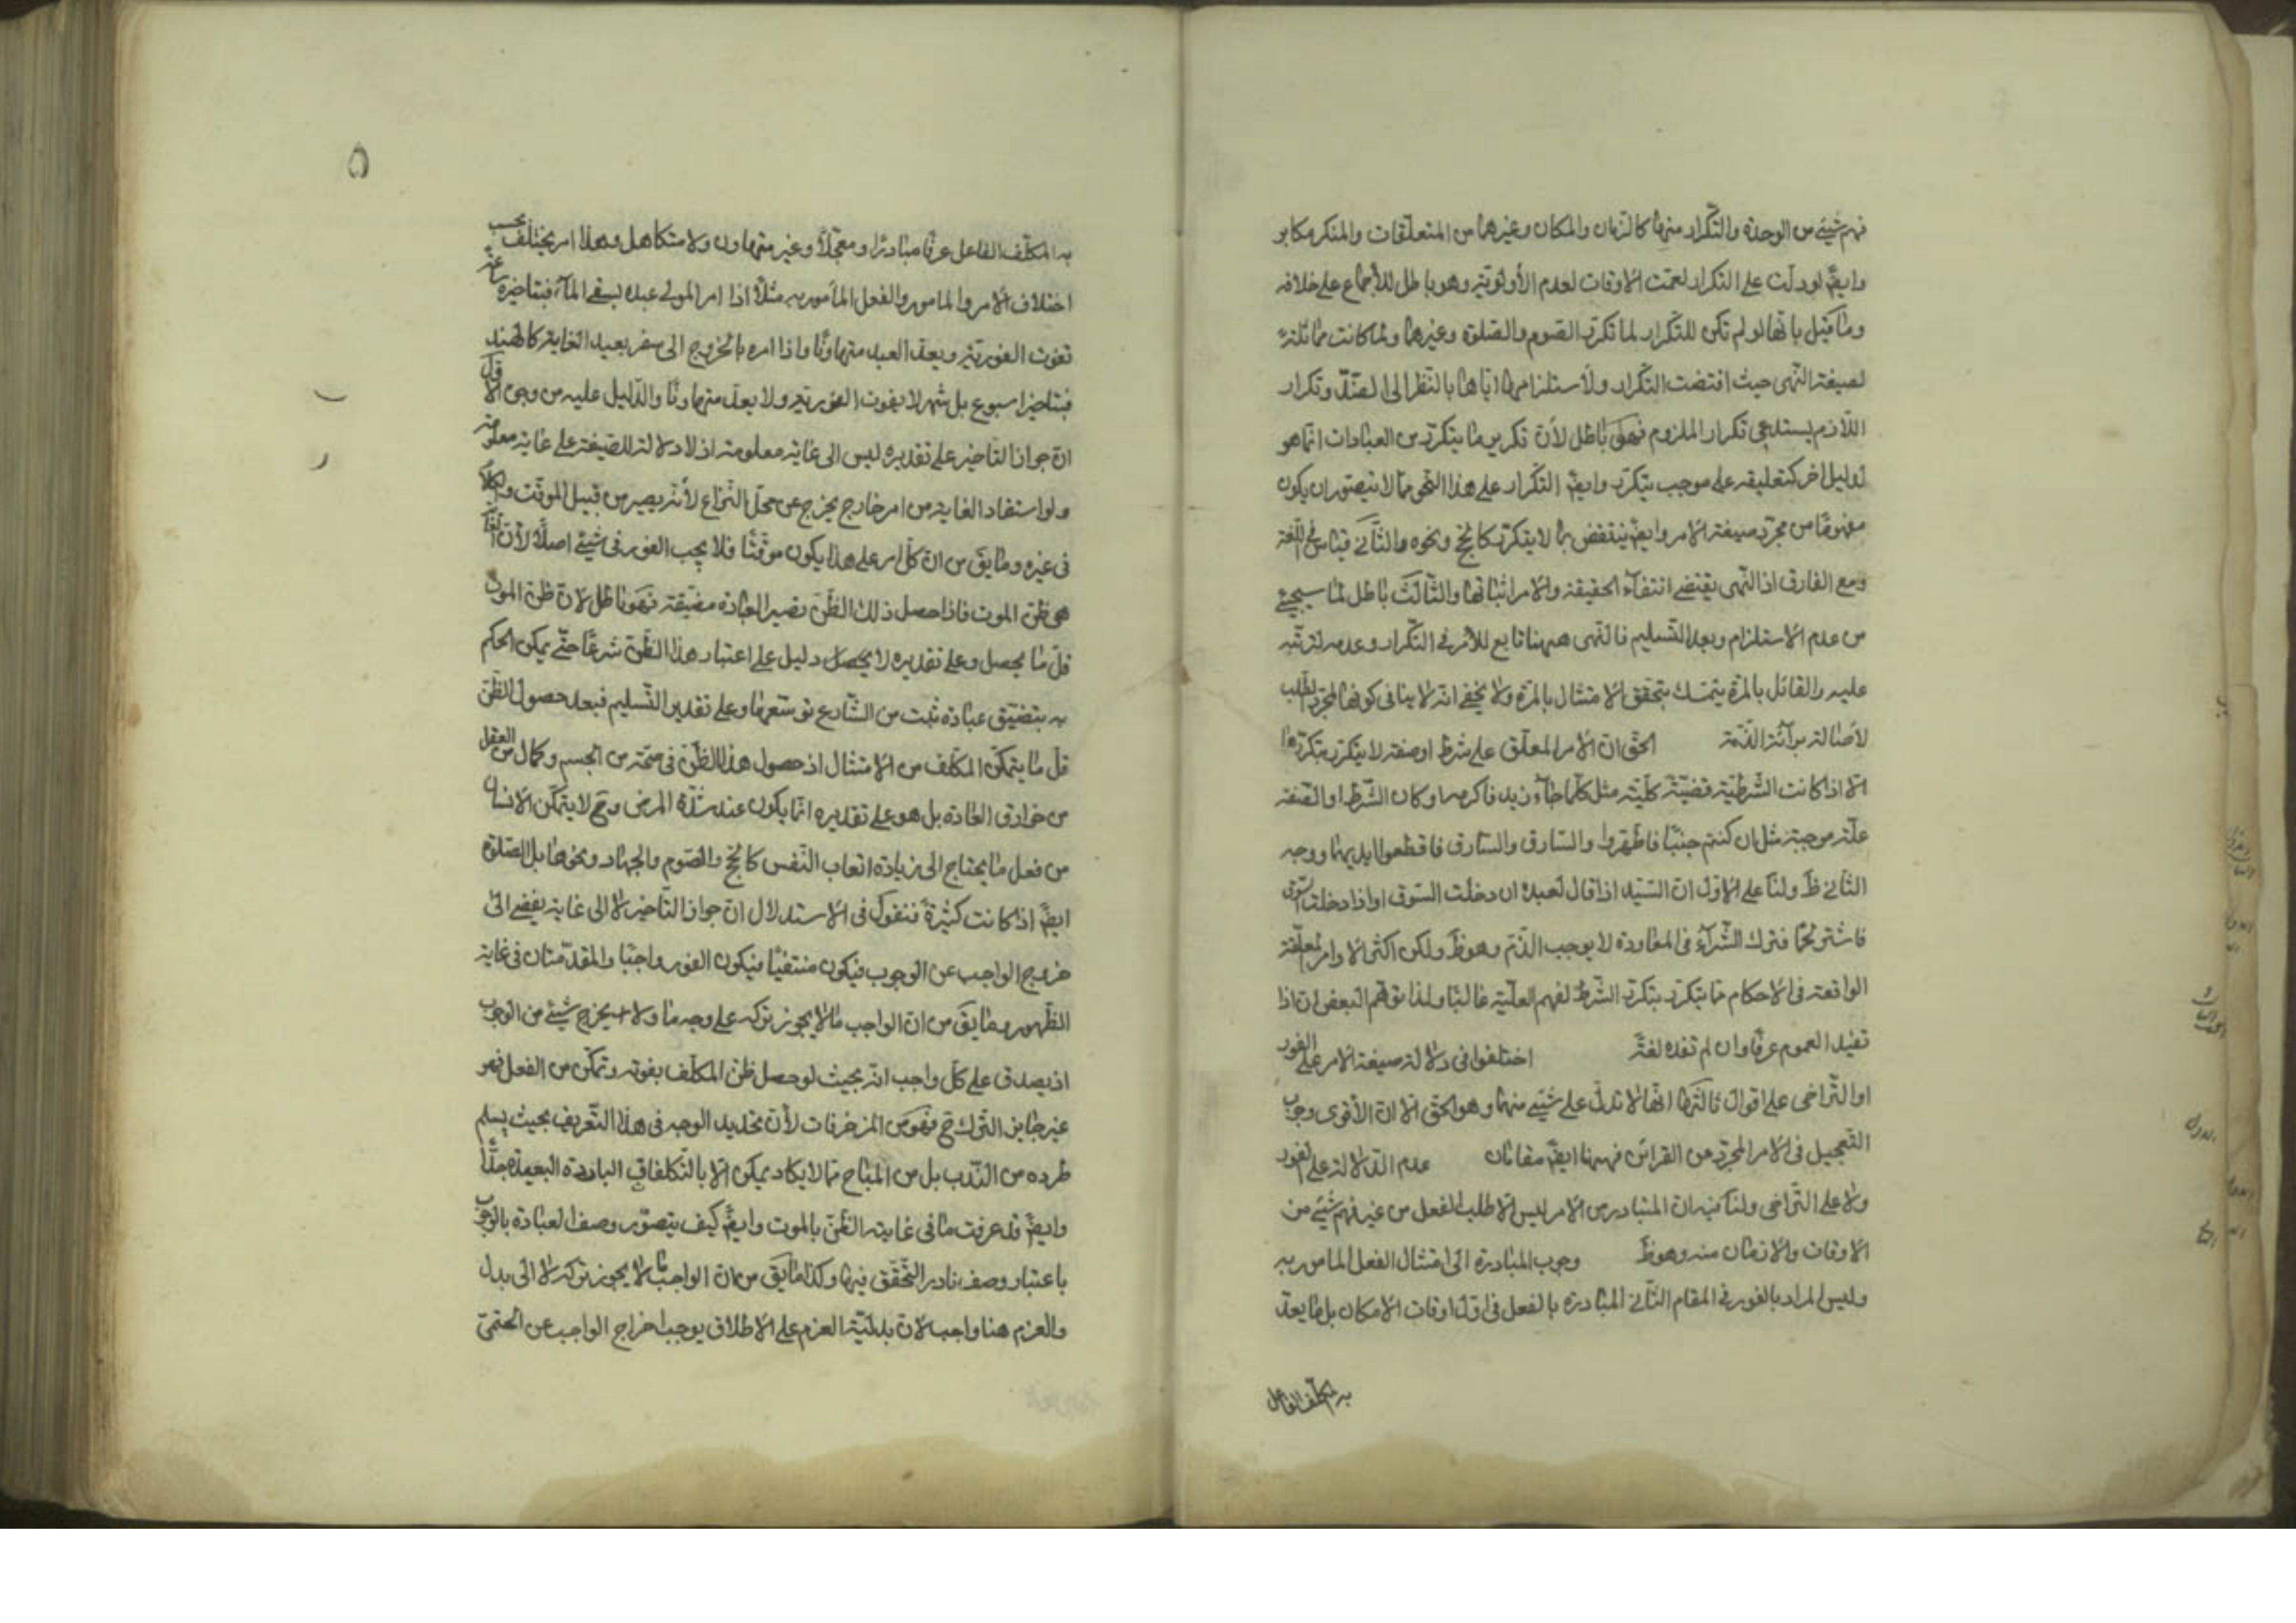 فهم شيئ من الوحدة والتّكرار منها كالزمان والمكان وغيرهما من المتعلّقات والمنكر مكابر
وايضً لو دلّت على التكرار لعمّت الاوقات لعدم الأولويّة وهو باطل للأجماع على خلافه
وما قيل بانّها لو لم تكن للتّكرار لما تكرّر الصّوم والصّلوة وغيرهما ولما كانت مماثلة
لصيغة النّهى حيث اقتضت التّكرار ولأستلزامها ايّاها بالنّظر الى الضّدّ وتكرار
اللّازم يستدعى تكرار الملزوم فهو باطل لأنّ تكرير ما يتكرّر من العبادات انّما هو
لدليل اخر كتعليقه على موجب يتكرّر وايضً التّكرار على هذا النّحو ممّا لا يتصوّر ان يكون
مفهومًا من مجرّد صيغة الامر وايضً ينتقض بما لا يتكرّر كالحجّ ونحوه والثّانى قياس فى اللّغة
ومع الفارق اذ النّهى يقتضى انتفاء الحقيقة والامر اثباتها والثّالث باطل لما سيجيئ
من عدم الاستلزام وبعد التّسليم فالنّهى ههنا تابع للأمر فى التّكرار وعدمه لترتّبه
عليه والقائل بالمرّة يتمسّك بتحقق الامتثال بالمرّة ولا يخفى انّه لا ينافى كونها لمجرّد الطّلب
لأصالة برآئة الذّمّة الحقّ انّ الامر المعلّق على شرط او صفة لا يتكرّر بتكرّرهما
الّا اذا كانت الشّرطيّة قضيّة كليّة مثل كلّما جاء زيد فاكرمه او كان الشّرط او الصّفة
علّة موجبة مثل ان كنتم جنبًا فاطّهروا والسّارق والسّارقة فاقطعوا ايديهما ووجه
الثّانى ظَ ولنا على الاوّل انّ السّيّد اذا قال لعبده ان دخلت السّوق او اذا دخلت السّوق
فاشتر لحمًا فترك الشّراء فى المعاودة لا يوجب الذّم وهو ظَ ولكن اكثر الاوامر المعلّقة
الواقعة فى الاحكام ممّا يتكرّر بتكرّر الشّرط لفهم العليّة غالبًا ولهذا توهّم البعض انّ اذا
تفيد العموم عرفًا وان لم تفده لغةً اختلفوا فى دلالة صيغة الامر على الفور
او التّراخى على اقوال ثالثها انّها لا تدلّ على شيئ منهما وهو الحقّ الّا انّ الأقوى وجوب
التّعجيل فى الامر المجرّد عن القرائن فههنا ايضً مقامان عدم الدّلالة على الفور
ولا على التّراخى ولنا فيه انّ المتبادر من الامر ليس الّا طلب الفعل من غير فهم شيئ من
الاوقات والازمان منه وهو ظَ وجوب المبادرة الى امتثال الفعل المأمور به
وليس المراد بالفور فى المقام الثّانى المبادرة بالفعل فى اوّل اوقات الامكان بل ما يعدّ
به المكلّف الفاعل
۵
به المكلّف الفاعل عرفًا مبادرًا ومعجّلًا وغير متهاون ولا متكاهل وهذا امر يختلف بحسب
اختلاف الامر والمأمور والفعل المأمور به مثلًا اذا امر المولى عبده بسقى الماء فبتاخيره ساعة
تفوت الفوريّة ويعدّ العبد متهاونًا واذا امره بالخروج الى سفر بعيد الغاية كالهند
فبتاخير اسبوع بل شهر لا يفوت الفوريّة ولا يعدّ متهاونًا والدّليل عليه من وجوه الاوّل
انّ جواز التّاخير على تقديره ليس الى غاية معلومة اذ لا دلالة للصّيغة على غاية معلومة
ولو استفاد الغاية من امر خارج يخرج عن محلّ النّزاع لأنّه يصير من قبيل الموقّت والكلام
فى غيره وما يقَ من انّ كلّ امر على هذا يكون موقّتًا فلا يجب الفور فى شيئ اصلًا لأنّ الغاية
هى ظنّ الموت فاذا حصل ذلك الظّنّ تصير العبادة مضيّقة فهو باطل لانّ ظنّ الموت
قلّ ما يحصل وعلى تقديره لا يحصل دليل على اعتبار هذا الظّنّ شرعًا حتّى يمكن الحكم
به بتضيّق عبادة ثبت من الشّارع توسّعها وعلى تقدير التّسليم فبعد حصول الظّنّ
قلّ ما يتمكّن المكلّف من الامتثال اذ حصول هذا الظّنّ فى صحّة من الجسم وكمال من العقل
من خوارق العادة بل هو على تقديره انّما يكون عند شدّة المرض وحَ لا يتمكّن الانسان
من فعل ما يحتاج الى زيادة اتعاب النّفس كالحجّ والصّوم والجهاد ونحوها بل الصّلوة
ايضً اذا كانت كثيرةً فنقول فى الاستدلال انّ جواز التّاخير لا الى غاية يفضى الى
خروج الواجب عن الوجوب فيكون منتفيًا فيكون الفور واجبًا والمقدّمتان فى غاية
الظّهور وما يقَ من انّ الواجب ما لا يجوز تركه على وجه ما ولا حَ يخرج شيئ من الوجوب
اذ يصدق على كلّ واجب انّه بحيث لو حصل ظنّ المكلّف بفوته وتمكّن من الفعل فهو
غير جايز التّرك حَ فهو من المزخرفات لأنّ تحديد الوجه فى هذا التّعريف بحيث يسلم
طرده من النّدب بل من المباح ممّا لا يكاد يمكن الّا بالتّكلفات الباردة البعيدة جدًّا
وايضً قد عرفت ما فى غاية الظّنّ بالموت وايضً كيف يتصوّر وصف العبادة بالوجوب
باعتبار وصف نادر التّحقّق فيها وكذا ما يقَ من انّ الواجب ما لا يجوز تركه لا الى بدل
والعزم هنا واجب لانّ بدليّة العزم على الاطلاق يوجب اخراج الواجب عن الحتمىّ